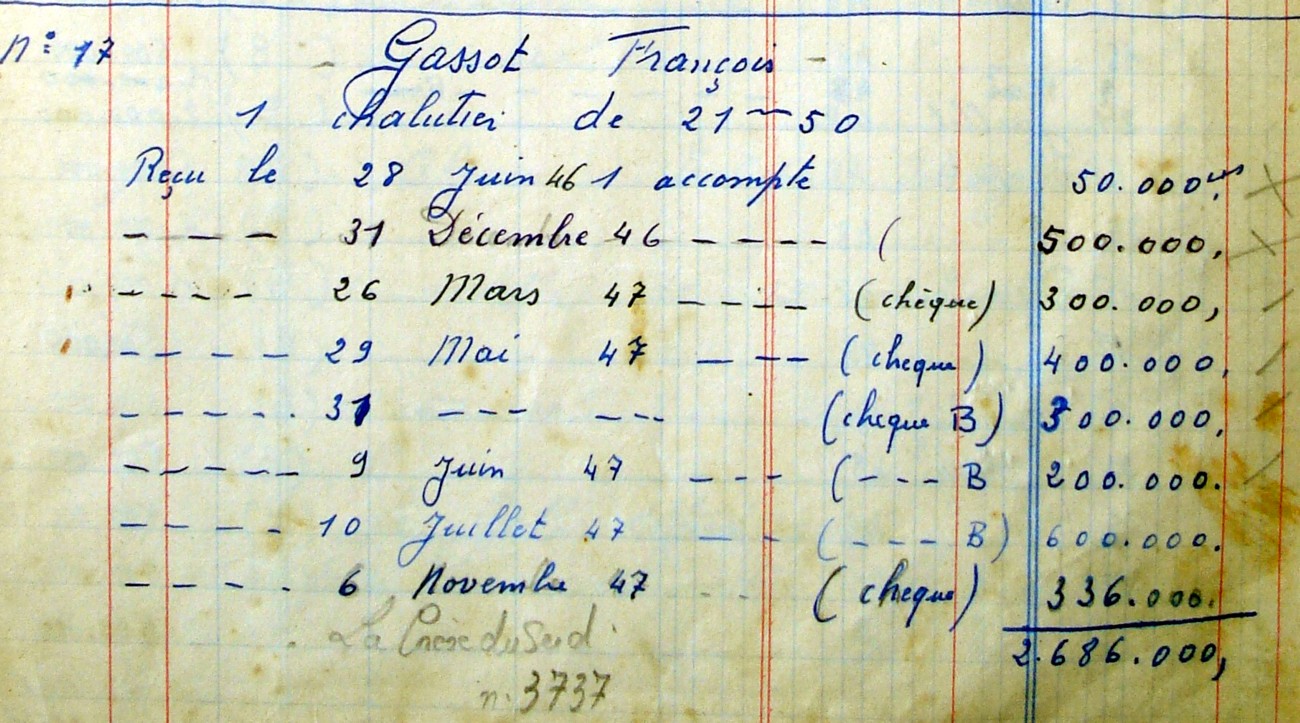 N° 17 - Gassot François -
1 chalutier de 21 m 50
Reçu le 28 Juin 46 1 accompte 50.000,
- - - - 31 Décembre 46 - - - - ( 500.000,
- - - - 26 Mars 47 - - - - (chèque) 300.000,
- - - - - 29 Mai 47 - - - (cheque) 400.000,
- - - - - 31 - - - - - - (cheque B) 300.000,
- - - - - 9 Juin 47 - - - (- - - B 200.000.
- - - - - 10 Juillet 47 - - - (- - - - B) 600.000.
- - - - - 6 Novembre 47 - - - (cheque) 336.000.
La Croix du Sud 2.686.000,
n. 3737